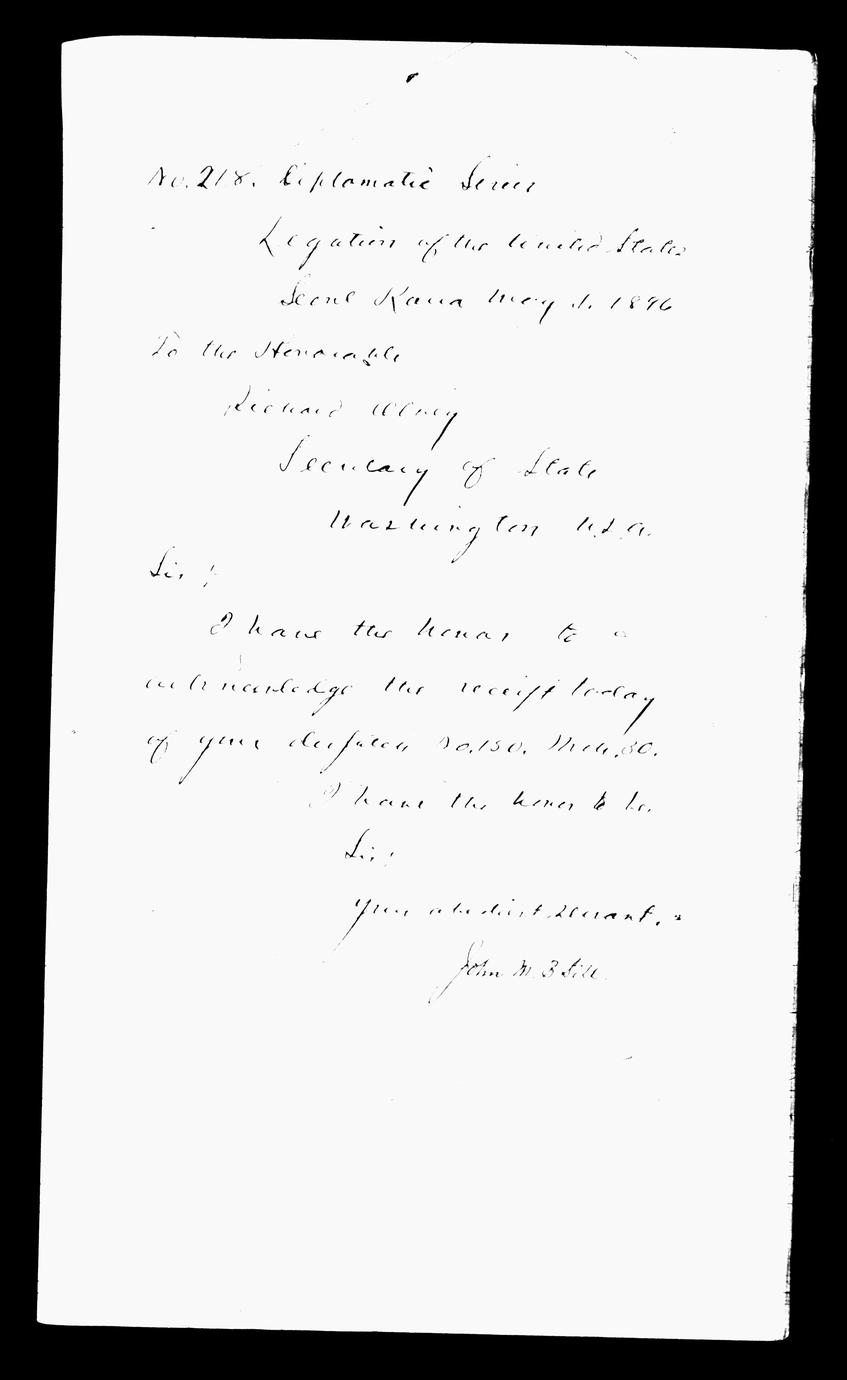 No. 218. Diplomatic Series
Legation of the United States
Seoul Korea May 1. 1896
To the Honorable
Richard Olney
Secretary of State
Washington U.S.A.
Sir:
I have the honor to
acknowledge the receipt today
of your despatch No. 130. Mch. 30.
I have the honor to be.
Sir:
Your obedient servant.
John M. B. Sill.